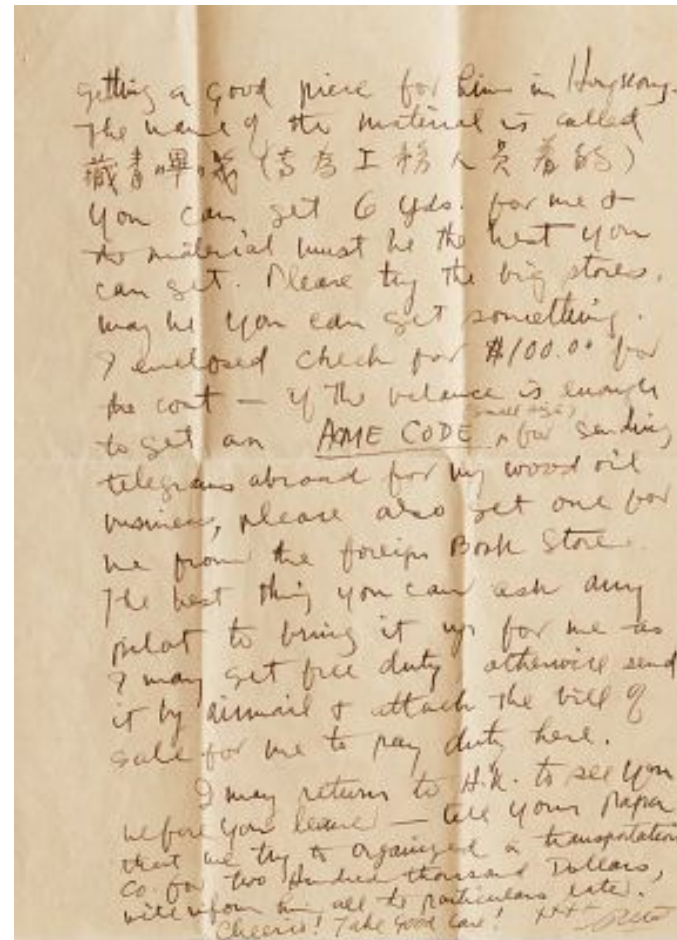 getting a good piece for him in HongKong.
The name of the material is called
藏青嗶嘰 (高等工務人員着的)
You can get 6 yds. for me &
the material must be the best you
can get. Please try the big stores.
may be you can get something.
I enclosed check for $100.00 for
the cost — if the balance is enough
to get an ACME CODE (small size) for sending
telegrams abroad for my wood oil
business, please also get one for
me from the foreign Book Store.
The best thing you can ask any
pilot to bring it up for me as
I may get free duty otherwise send
it by airmail & attach the bill of
sale for me to pay duty here.
I may return to H.K. to see you
before you leave — tell your papa
that we try to organized a transportation
Co. for two Hundred thousand Dollars,
will inform him all the particulars later.
Cheerio! Take good care! +++